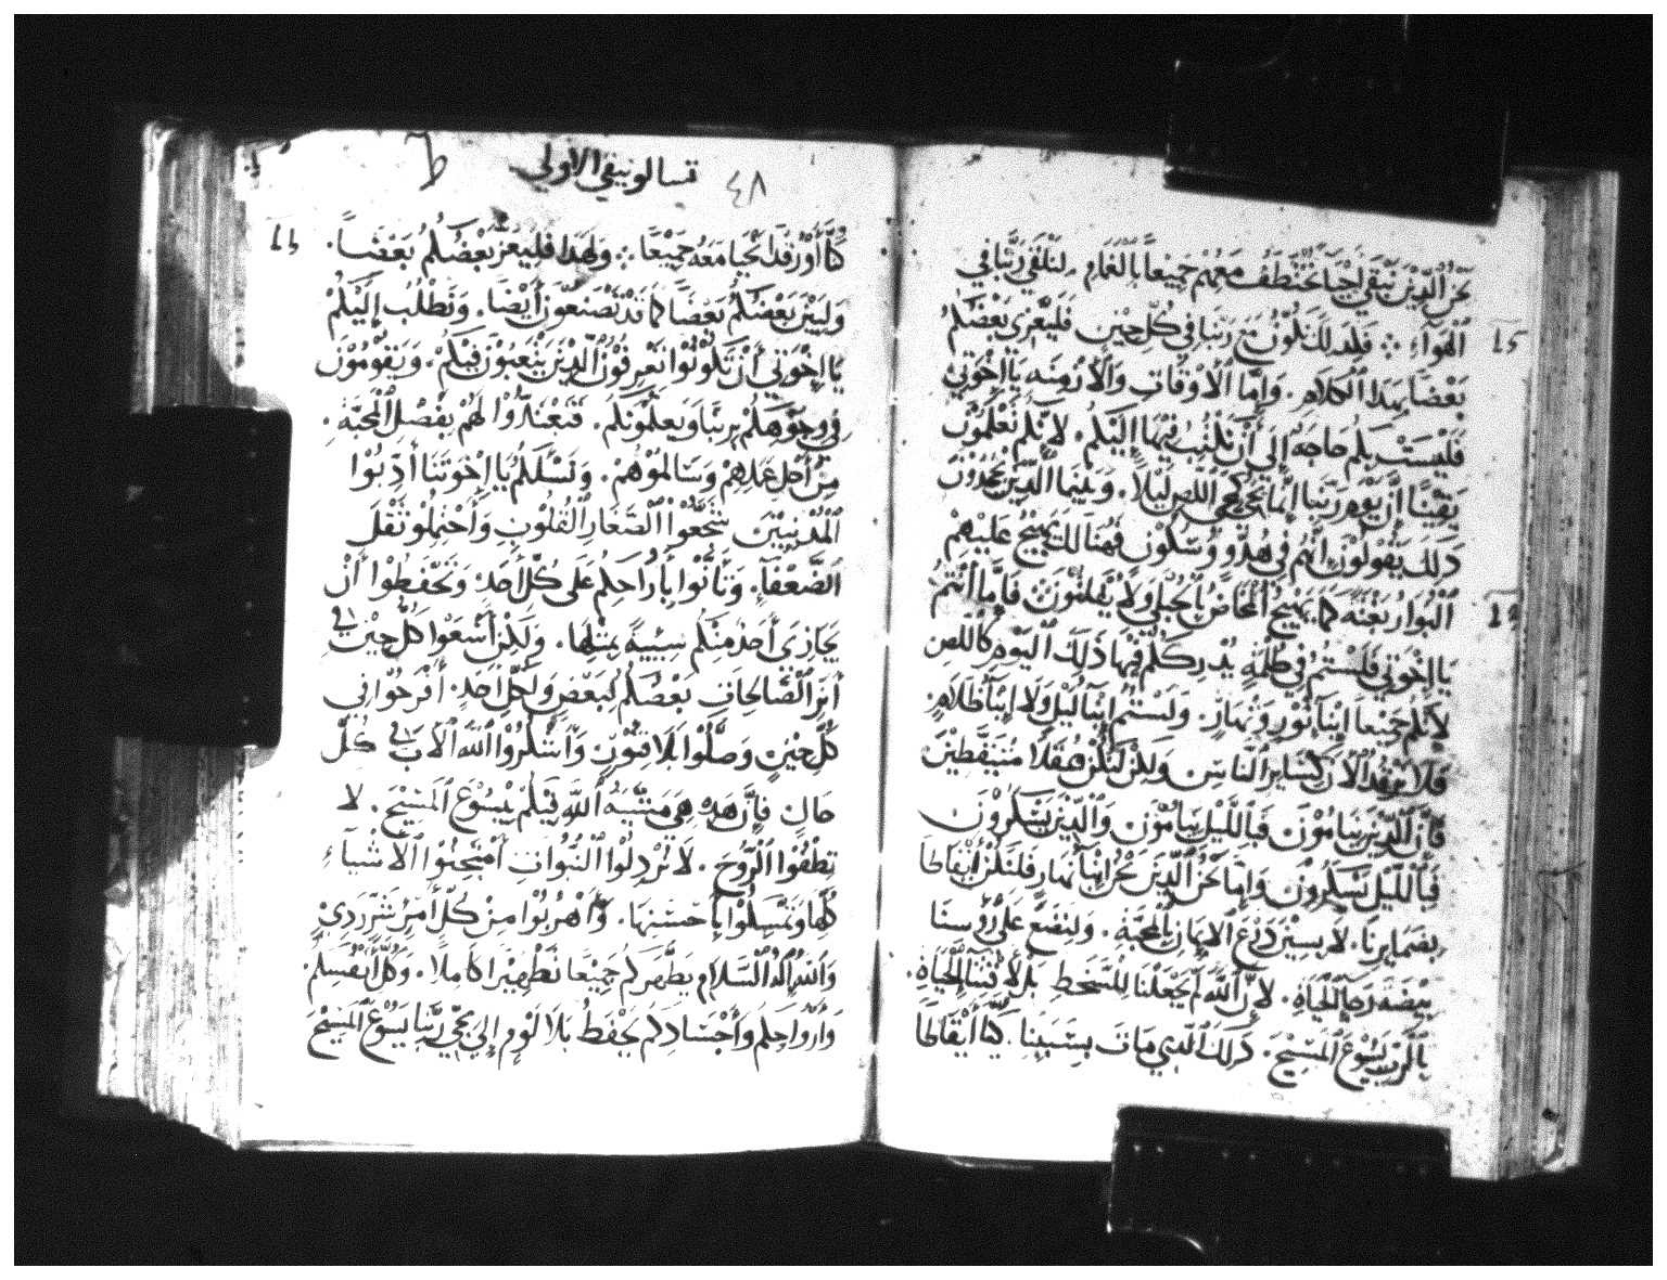 نَحْنُ الَّذِيْنَ نَبْقَى اَحْيَا نُخْتَطَفُ مَعَهُمْ جَمِيْعاً بِالْغَمَامِ لِنَلْقَى رَبَّنَا فِي
الْهَوَآءِ ܀ فَلِذلكَ نَكُونُ مَعَ رَبِّنَا فِي كُلِّ حِيْنٍ فَلْيُعَزِّي بَعْضُكُمْ
بَعْضًا بِهذا الْكَلَامِ . وَامَّا الْاَوْقَات وَالْاَزْمِنَه يَا اِخْوَتِيْ
فَلَيْسَتْ بِكُم حَاجَةٌ إِلَى أَنْ نَكْتُبَ فِيْهَا اِلَيْكُمْ . لِاَنَّكُمْ تَعْلَمُوْنَ
يَقِيْنًا اَنَّ يَوْم رَبّنَا اِنَّمَا يَجِي كَمَجِي اللّصِ لَيْلًا . وَبَيْنَمَا الَّذِيْنَ يَجْحَدُوْنَ
ذَلِكَ يَقُوْلُوْنَ اِنَّهُم فِي هُدُوٍّ وَسُكُوْن فَهُنَالِكَ يَهِيْجُ عَلَيْهِمْ
الْبَوَارُ بَغْتَةً كَمَا يَهِيْجُ الْمَخَاضُ بِالْحُبْلَى وَلَا يَفْلِتُوْنَ فَاِمَّا اَنْتُمُ
يَا اِخْوَتِي فَلَسْتُمُ فِي ظُلْمَةٍ يُدْرِكُكُمْ فِيْهَا ذَلِكَ الْيَوْم كَاللصِ
لاَِنَّكُم جَمِيْعا اِبْنَآ نُوْرٍ وَنَهَارٍ . وَلَسْتُم اِبْنَآ لَيْلٍ وَلَا اِبْنَآ ظَلَامٍ
فَلَا نَرْقُدُ الْاَنَ كَسَايِر النَّاسِ وَلَكِنْ لِنَكُنْ عُقَلَا مُتَيَقّظِيْنَ
فَاَنَّ الَّذِيْنَ يَنَامُوْنَ فَبِاللَّيْلِ يَنَامُوْن وَالَّذِيْنَ يَسْكَرُوْنَ
فَبِاللَّيْل يَسْكَرُوْن وَاِمَّا نَحْنُ الَّذِيْنَ نَحْنُ اِبْنَآ نَهَارٍ فَلْنَكُنْ اَيْقَاظًا
بِضَمَايِرِنَا . لَابِسِيْنَ دِرْعَ الاِيمَانِ بِالْمَحَبَّةِ . وَلِنَضَعَ عَلَى رُؤُسِنَا
بَيْضَة رَجَا الْحَيَاةِ . لاِنَّ اللَّه لَم يَجْعَلْنَا لِلْسَخَطِ بَلْ لِاَقْتِنَآ الْحَيَاةِ .
بِالرَّبِّ يَسُوْع الْمَسِيْحِ . ذَلِكَ الَّذِي مَاتَ بِسَبَبِنَا . لِكَيْمَا اَيْقَاظًا
تسالونيقي الاولى ٤٨
كُنَّا أَوْ رُقَّدًا نَحْيَا مَعَهُ جَمِيْعًا ܀ وَلِهَذا فَلِيُعَزِّ بَعْضُكُمُ بَعْضاً .
وَلِيَبْنِ بَعْضُكُمْ بَعْضًا كَمَا قَدْ تَصْنَعُوْنَ أَيْضًا . وَنَطْلُبُ إِلَيْكُمْ
يَا اِخْوَتِي أَنْ تَكُوْنُوْا تَعْرِفُوْنَ الَّذِيْنَ يَتْعَبُوْنَ فِيْكُمْ . وَيَقُوْمُوْنَ
فِي وُجُوْهِكُمْ بِرَبِّنَا وَيعَلِّمُوْنَكُمْ . فَتَعْتَدُّوْا لَهُمْ بِفَضْلِ الْمَحَبَّةِ .
مِنْ أَجْلِ عَمَلِهِمْ وَسَالِمُوْهُمْ . وَنَسْئَلُكُمْ يَا إِخْوَتَنَا أَدّبُوْا
الْمُذْنِبِيْنَ شَجّعُوْا الصّغَارِ الْقُلُوْبِ وَاَحْتَمِلُوْا ثِقْلَ
الضُّعَفَآءِ . وَتَأَنَّوْا بِأَرْوَاحِكُم عَلَى كُلِّ أَحَدٍ وَتَحَفَّظُوْا أَنْ
يُجَازِيَ أَحَدٌ مِنْكُمْ سَيِّيَةً بِمِثْلِهَا . وَلَكِنْ أَسْعَوْا كُلَّ حِيْنٍ في
أَثَرِ الْصَّالِحَاتِ بَعْضُكُمْ لِبَعْضٍ وَلِكُلِّ اَحَدٍ . أَفْرَحُوْا فِي
كُلِّ حِيْنٍ وَصَلُّوْا بَلَا فُتُوْرٍ وَاَشْكُرُوْا اللّه الْآبَ في كُلِّ
حَالٍ فَإِنَّ هَذِهِ هِيَ مَشِيَّةُ اللَّه فِيْكُمْ بِيَسُوْعَ الْمَسِيْحَ . لا
تطْفُوْا الْرُّوْحَ . لَا تُرْذِلُوْا النُّبُوَّاتِ اَمْتَحِنُوْا الْأَشْيَآءَ
كُلّهَا وَتَمَسَّكُوْا بِأَحْسَنِهَا . وَاَهْرُبُوْا مِنْ كُلِّ أَمْرٍ شِرّيْرٍ رَدِيٍّ
وَاللّهُ إِلَهُ الْسَّلَامِ يُطَهِّركُم جَمِيْعًا تَطْهِيْرًا كَامِلًا . وَكُلّ أَنْفُسِكُمْ
وَأَرْوَاحِكُم وَأَجْسَادِكُم يَحْفَظُ بَلَا لَوْمٍ إِلَى مَجِي رَبِّنَا يَسُوْعَ الْمَسِيْحَ